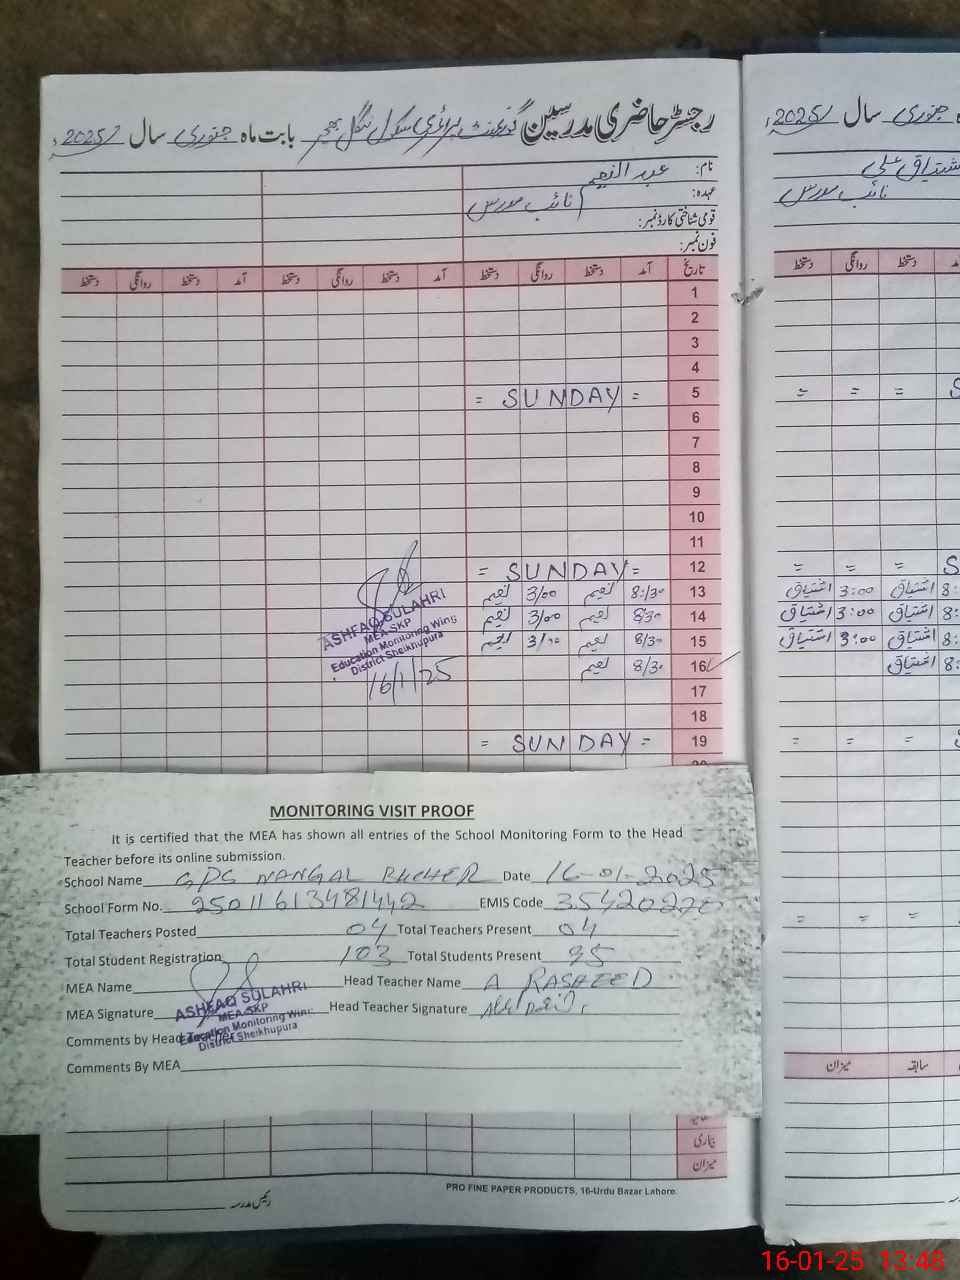 رجسٹر حاضری مدرسین گورنمنٹ پرائمری سکول ننگل بھچر بابت ماہ جنوری سال 2025ء
نام: عبد النعیم
عہدہ: نائب مدرس
قومی شناختی کارڈ نمبر:
فون نمبر:
تاریخ آمد دستخط روانگی دستخط آمد دستخط روانگی دستخط آمد دستخط روانگی دستخط
1
2
3
4
5 = SUNDAY =
6
7
8
9
10
11
12 = SUNDAY =
13 8:/30 نعیم 3/00 نعیم
14 8/30 نعیم 3/00 نعیم
15 8/30 نعیم 3/00 نعیم
16 8/30 نعیم
17
18
19 = SUNDAY =
ASHFAQ SULAHRI
MEA-SKP
Education Monitoring Wing
District Sheikhupura
16/1/25
MONITORING VISIT PROOF
It is certified that the MEA has shown all entries of the School Monitoring Form to the Head
Teacher before its online submission.
School Name GPS NANGAL BUCHER Date 16-01-2025
School Form No. 25011613481442 EMIS Code
Total Teachers Posted 04 Total Teachers Present 04
Total Student Registration 103 Total Students Present 95
MEA Name Head Teacher Name A RASHEED
MEA Signature Head Teacher Signature
ASHFAQ SULAHRI
MEA-SKP
Education Monitoring Wing
District Sheikhupura
Comments by Head Teacher
Comments By MEA
بیماری
میزان
رئیس مدرسہ
PRO FINE PAPER PRODUCTS, 16-Urdu Bazar Lahore.
جنوری سال 2025ء
اشتیاق علی
نائب مدرس
دستخط روانگی دستخط
= = =
= = =
اشتیاق 3:00 اشتیاق
اشتیاق 3:00 اشتیاق
اشتیاق 3:00 اشتیاق
اشتیاق
= = =
= = =
سابقہ میزان
16-01-25 13:48